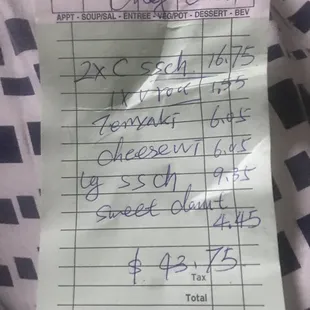 APPT - SOUP/SAL - ENTREE - VEG/POT - DESSERT - BEV
2x C ssch 16.75
1x V roll 1.35
Teriyaki 6.05
cheesewt 6.05
lg ssch 9.35
sweet donut
4.45
$ 43.75
Tax
Total